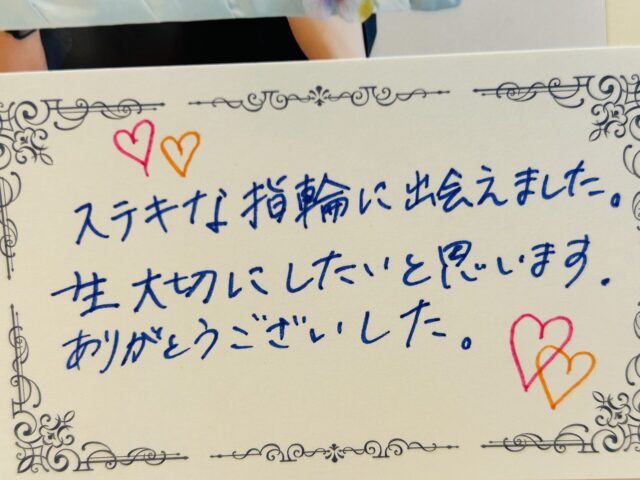 ステキな指輪に出会えました。
一生大切にしたいと思います.
ありがとうございした。